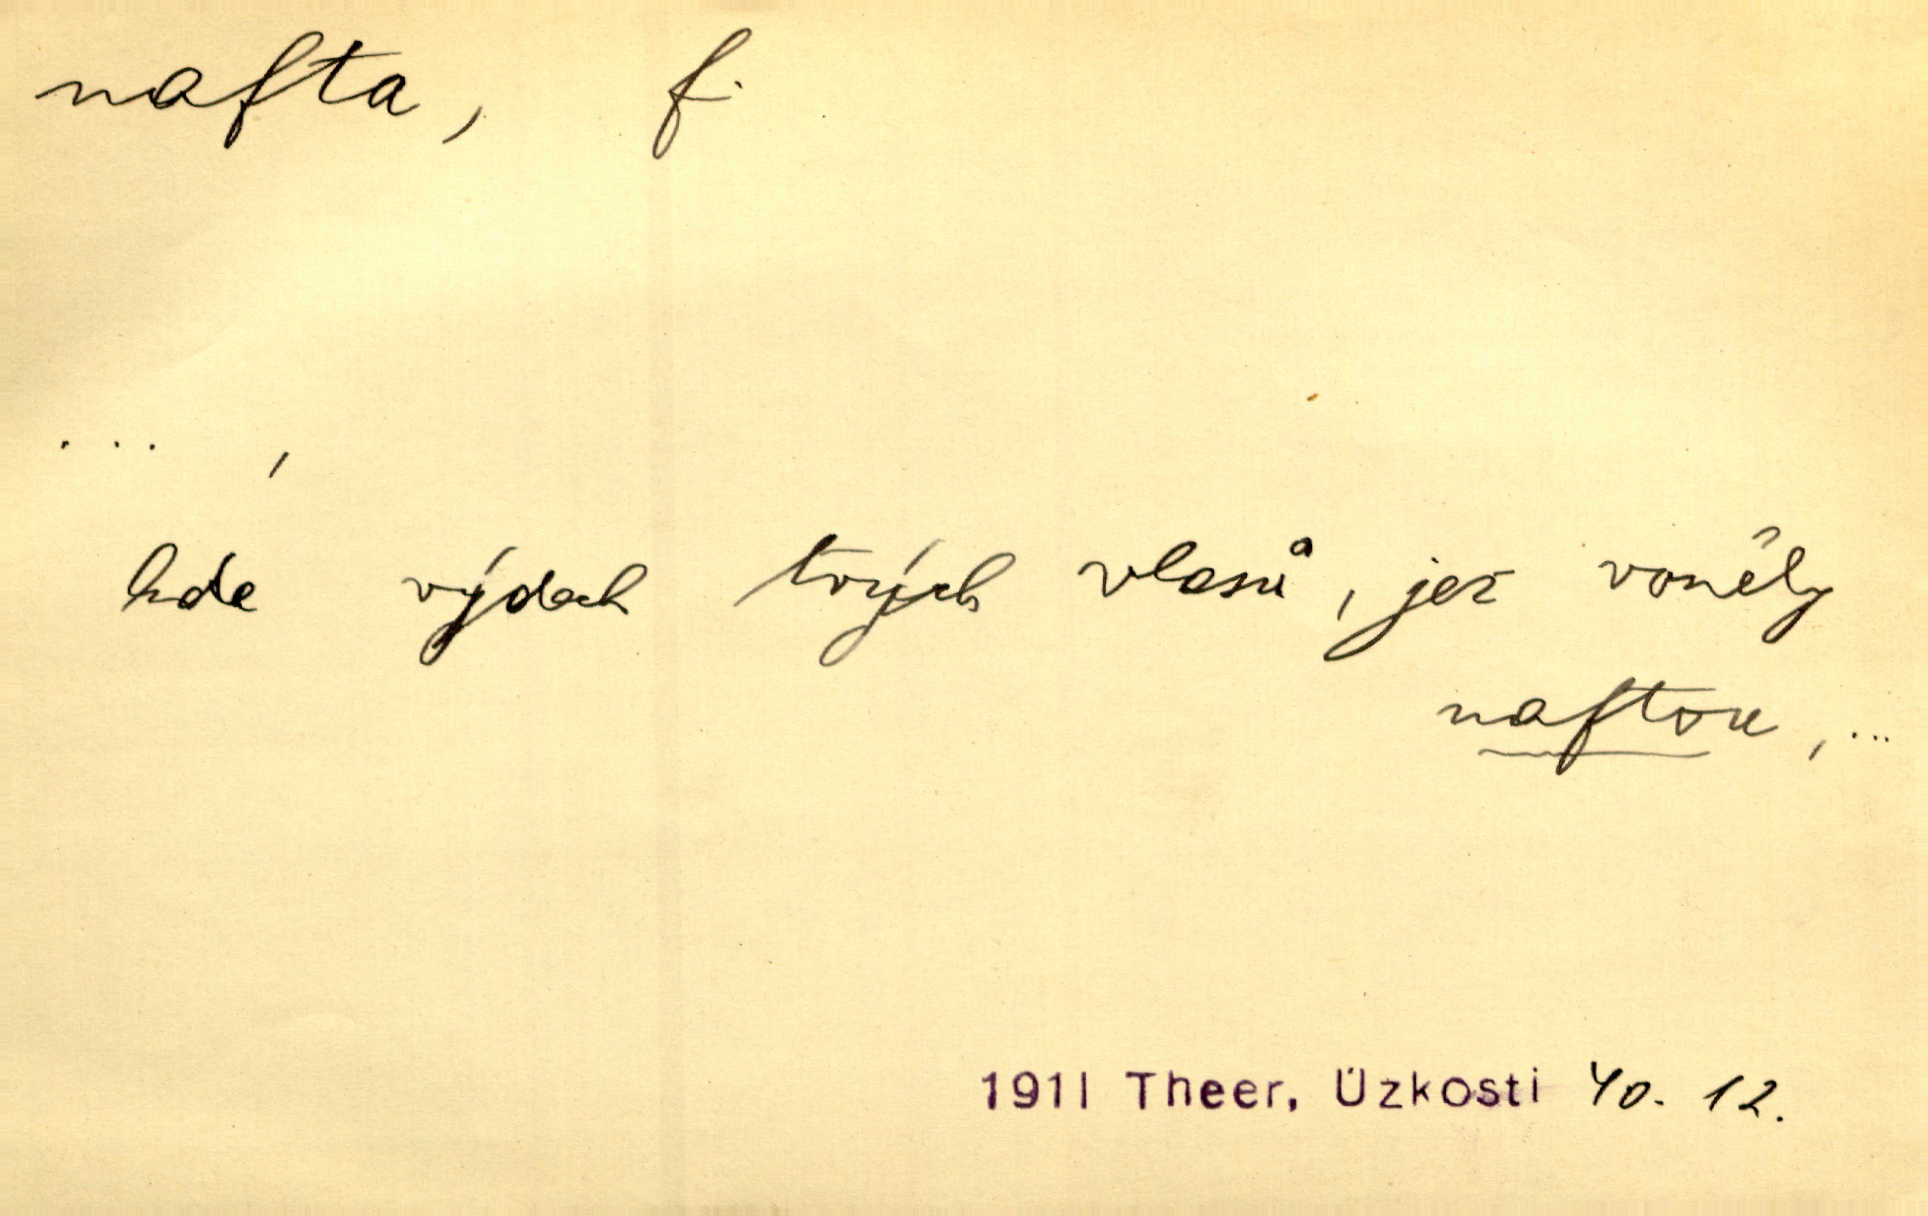 nafta, f.
... ,
kde výdech tvých vlasů, jež voněly
naftou, ...
1911 Theer, Úzkosti 40. 12.